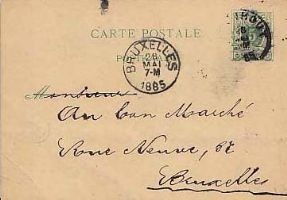 CARTE POSTALE
BRUXELLES
28
MAI
7-M
1885
Monsieur
Au Bon Marché
Rue Neuve, 62
Bruxelles